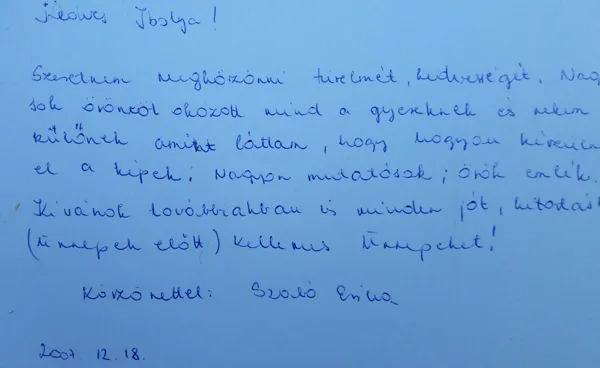 Kedves Ibolya!
Szeretném megköszönni türelmét, kedvességét. Nagy
sok örömöt okozott mind a gyereknek és nekem
külőnek amikt láttam, hogy hogyan
el a képek! Nagyon mutatósak; örök emlék.
Kívánok továbbiakban is minden jót,
(ünnepek előtt) Kellemes Ünnepeket!
Köszönettel: Szabó Erika
2007. 12. 18.